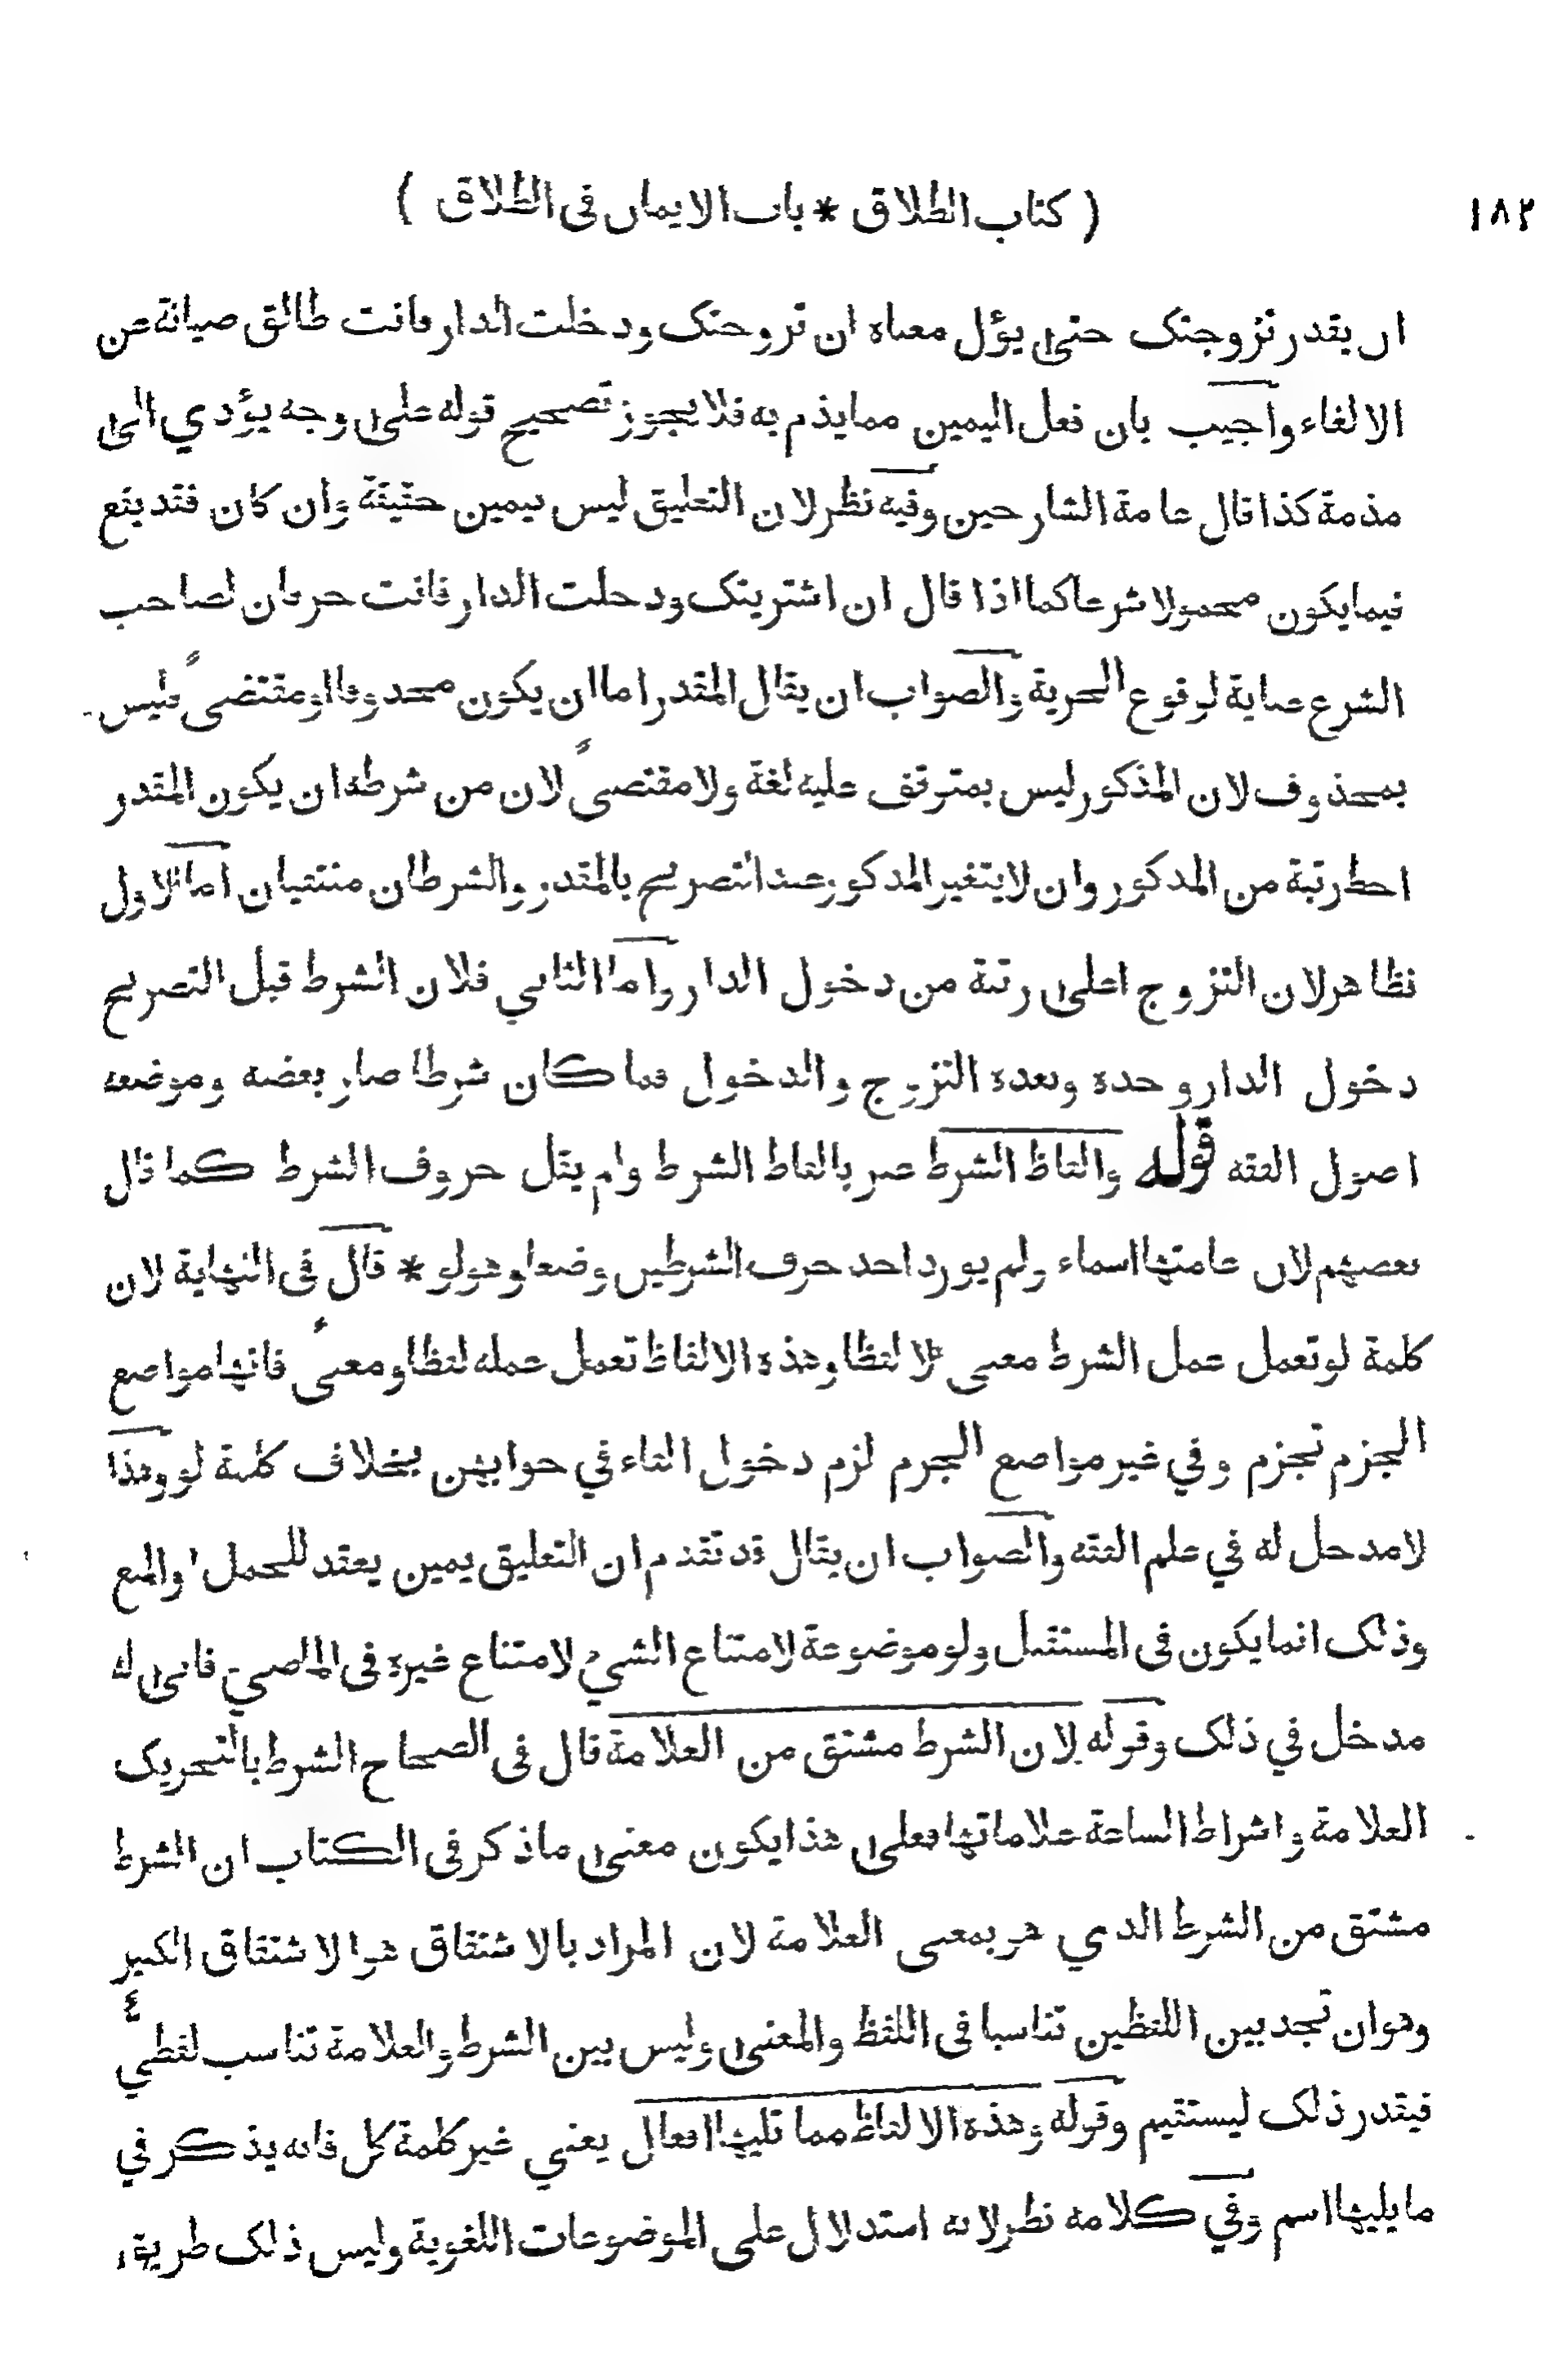 ١٨٢ ( كتاب الطلاق * باب الايمان فى الطلاق )
ان يقدر تزوجتك حتى يؤل معناه ان تزوجتك ودخلت الدار فانت طالق صيانة عن
الالغاء واجيب بان فعل اليمين مما يذم به فلا يجوز تصحيح قوله على وجه يؤدي الى
مذمة كذا قال عامة الشارحين وفيه نظر لان التعليق ليس بيمين حقيقة وان كان فقد يقع
فيما يكون محمولا شرعا كما اذا قال ان اشتريتك ودخلت الدار فانت حر فان لصاحب
الشرع عناية لوقوع الحرية والصواب ان يقال المقدر اما ان يكون محذوفا او مقتضىً فليس
بمحذوف لان المذكور ليس بمتوقف عليه لغة ولا مقتضىً لان من شرطه ان يكون المقدر
احط رتبة من المذكور وان لا يتغير المذكور عند التصريح بالمقدر والشرطان منتفيان اما الاول
فظاهر لان التزوج اعلى رتبة من دخول الدار واما الثاني فلان الشرط قبل التصريح
دخول الدار وحده وبعده التزوج والدخول فما كان شرطا صار بعضه وموضعه
اصول الفقه قوله والفاظ الشرط عبر بالفاظ الشرط ولم يقل حروف الشرط كما قال
بعضهم لان عامتها اسماء ولم يورد احد حرف الشرطين وضعا وهو لو * قال فى النهاية لان
كلمة لو تعمل عمل الشرط معنى لا لفظا وهذه الالفاظ تعمل عمله لفظا ومعنىً فانها مواضع
الجزم تجزم وفي غير مواضع الجزم لزم دخول الفاء في جوابهن بخلاف كلمة لو وهذا
لا مدخل له في علم الفقه والصواب ان يقال قد تقدم ان التعليق يمين يعقد للحمل او المنع
وذلك انما يكون فى المستقبل ولو موضوعة لامتناع الشيء لامتناع غيره فى الماضي فانى له
مدخل في ذلك وقوله لان الشرط مشتق من العلامة قال فى الصحاح الشرط بالتحريك
العلامة واشراط الساعة علاماتها فعلى هذا يكون معنى ما ذكر فى الكتاب ان الشرط
مشتق من الشرط الذي هو بمعنى العلامة لان المراد بالاشتقاق هو الاشتقاق الكبير
وهو ان تجد بين اللفظين تناسبا فى اللفظ والمعنى وليس بين الشرط والعلامة تناسب لفظي
فيقدر ذلك ليستقيم وقوله وهذه الالفاظ مما تليها افعال يعني غير كلمة كل فانه يذكر في
ما يليها اسم وفي كلامه نظر لانه استدلال على الموضوعات اللغوية وليس ذلك طريقه